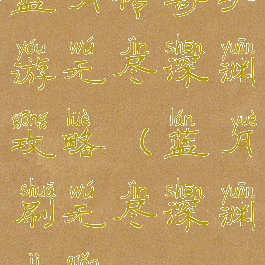 yóu wú jìn shēn yuān
游无尽深渊
gōng lüè lán yuè
攻略(蓝月
shuā wú jìn shēn yuān
刷无尽深渊